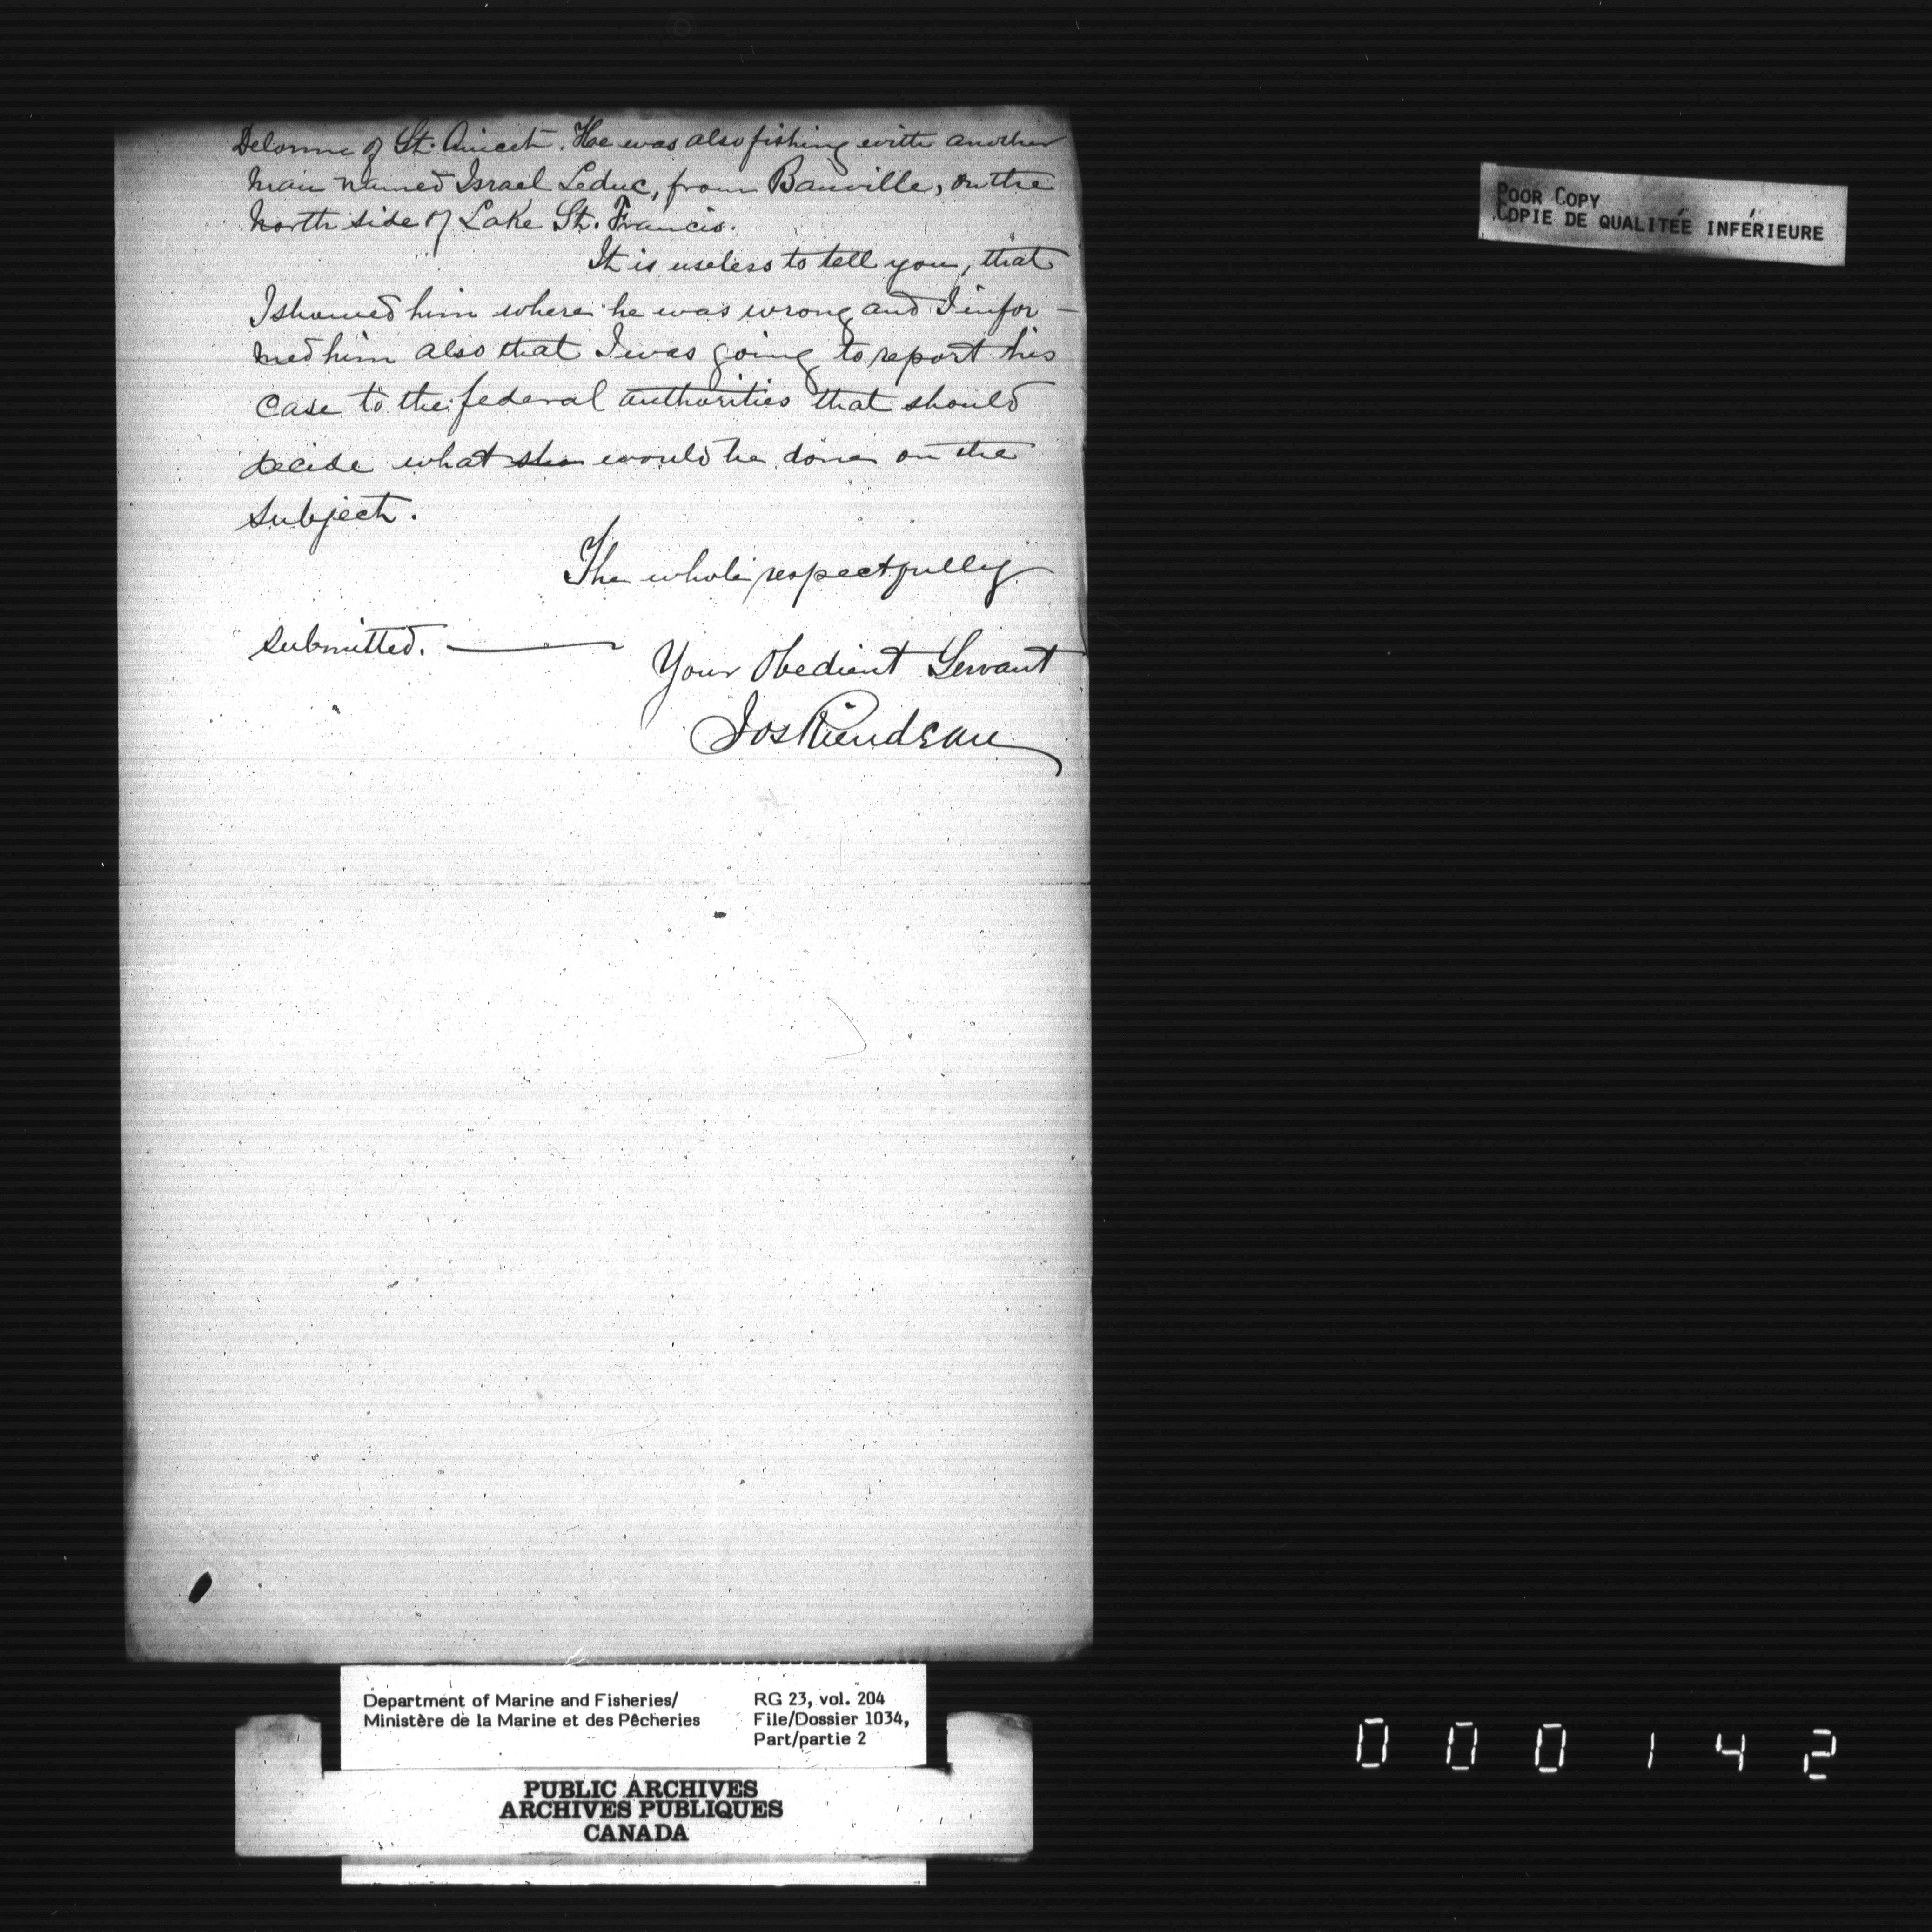 Delorme of St. Anicet. He was also fishing with another
man named Israel Leduc, from Bainville, on the
north side of Lake St. Francis.
It is useless to tell you, that
I showed him where he was wrong and I infor-
med him also that I was going to report his
case to the federal authorities that should
decide what sho would be done on the
subject.
The whole respectfully
submitted. —
Your Obedient Servant
Jos Riendeau
POOR COPY
COPIE DE QUALITÉE INFÉRIEURE
Department of Marine and Fisheries/
Ministère de la Marine et des Pêcheries
RG 23, vol. 204
File/Dossier 1034,
Part/partie 2
PUBLIC ARCHIVES
ARCHIVES PUBLIQUES
CANADA
000142